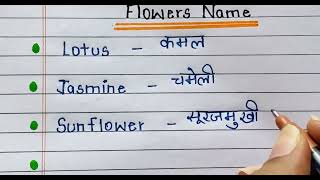 Flowers Name
Lotus - कमल
Jasmine - चमेली
Sunflower - सूरजमुखी